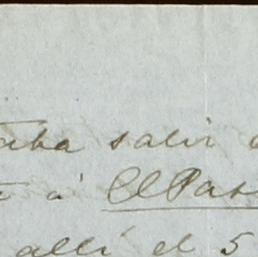 aba salir
á El Pas
allí el 5